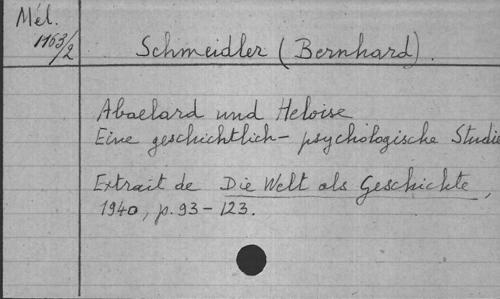 Mél.
1163/2
Schmeidler (Bernhard).
Abaelard und Heloise
Eine geschichtlich - psychologische Studie
Extrait de Die Welt als Geschichte,
1940, p. 93 - 123.